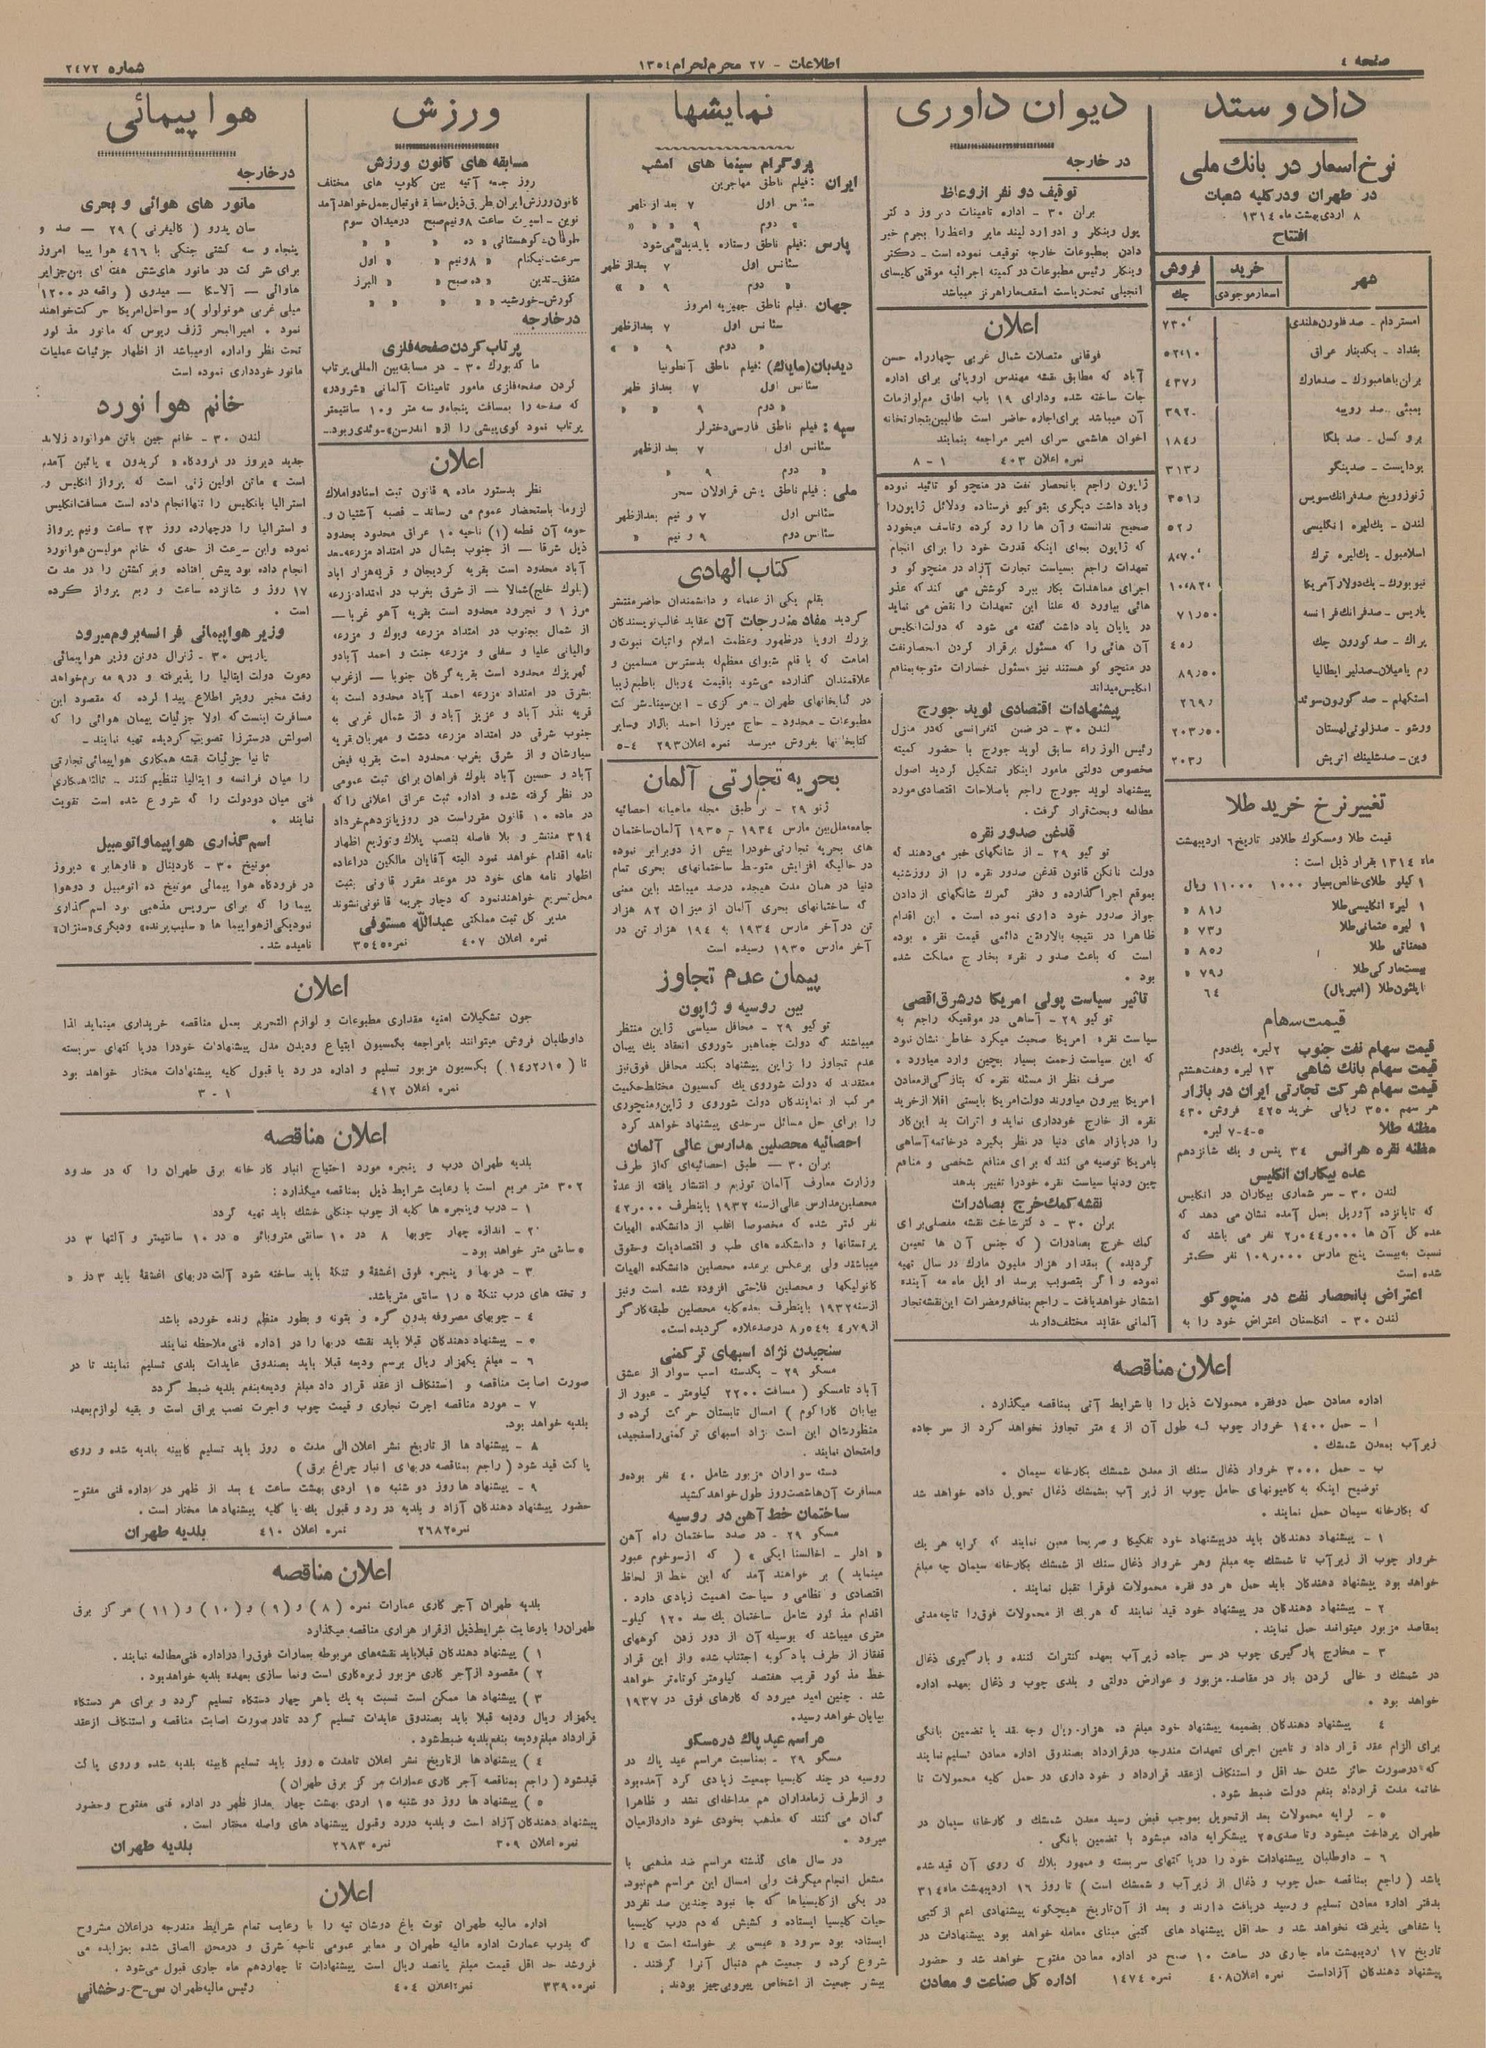 صفحه ٤
اطلاعات - ٢٧ محرم‌الحرام ١٣٥٤
شماره ٢٤٧٢
داد و ستد
نرخ اسعار در بانك ملی
در طهران و در کلیه شعبات
٨ اردی بهشت ماه ١٣١٤
افتتاح
شهر
خرید
اسعار موجودی
فروش
چك
امستردام - صد فلورن هلندی
بغداد - یکدینار عراقی
برلن یا هامبورك - صد مارك
بمبئی - صد روپیه
بروکسل - صد بلگا
بوداپست - صد پنگو
ژنو زوریخ صد فرانك سویس
لندن - یك لیره انگلیسی
اسلامبول - یك لیره ترك
نیویورك - یك دولار آمریکا
پاریس - صد فرانك فرانسه
پراك - صد کورون چك
رم یا میلان - صد لیر ایطالیا
استکهلم - صد کورون سوئد
ورشو - صد زلوتی لهستان
وین - صد شلینك اتریش
تغییر نرخ خرید طلا
قیمت طلا و مسکوك طلا در تاریخ ٦ اردیبهشت
ماه ١٣١٤ بقرار ذیل است :
١ کیلو طلای خالص بعیار ١٠٠٠ ١١٠٠٠ ریال
١ لیره انگلیسی طلا ٨١ر «
١ لیره عثمانی طلا ٧٣ر «
٨٥ر «
بیست مارکی طلا ٧٩ر «
(امپریال) ٦٤
قیمت سهام
قیمت سهام نفت جنوب ٢ لیره یك دوم
قیمت سهام بانك شاهی ١٣ لیره و هفت هشتم
قیمت سهام شرکت تجارتی ایران در بازار
هر سهم ٣٥٠ ریالی خرید ٤٢٥ فروش ٤٣٠
مظنه طلا ٥-٤-٧ لیره
مظنه نقره هر انس ٣٤ پنس و یك شانزدهم
عده بیکاران انگلیس
لندن ٣٠ - سر شماری بیکاران در انگلیس
که تا پانزده آوریل بعمل آمده نشان می دهد که
عده کل آن ها ٢ر٠٤٤ر٠٠٠ نفر می باشد که
نسبت به بیست پنج مارس ١٠٩ر٠٠٠ نفر کمتر
شده است
اعتراض بانحصار نفت در منچوکو
لندن ٣٠ - انگلستان اعتراض خود را به
دیوان داوری
در خارجه
توقیف دو نفر از وعاظ
برلن ٣٠ - اداره تامینات دیروز دکتر
پول وینکلر و ادوارد لیند مایر واعظ را بجرم خبر
دادن بمطبوعات خارجه توقیف نموده است - دکتر
وینکلر رئیس مطبوعات در کمیته اجرائیه موقتی کلیسای
انجیلی تحت ریاست اسقف ماراهرنز میباشد
اعلان
فوقانی متصلات شمال غربی چهارراه حسن
آباد که مطابق نقشه مهندس اروپائی برای اداره
جات ساخته شده و دارای ١٩ باب اطاق مع لوازمات
آن میباشد برای اجاره حاضر است طالبین بتجارتخانه
اخوان هاشمی سرای امیر مراجعه بنمایند
نمره اعلان ٤٠٣ ١ - ٨
ژاپون راجع بانحصار نفت در منچوکو تائید نموده
و یاد داشت دیگری بتوکیو فرستاده و دلائل ژاپون را
صحیح ندانسته و آن ها را رد کرده و تاسف میخورد
که ژاپون بجای اینکه قدرت خود را برای انجام
تعهدات راجع بسیاست تجارت آزاد در منچوکو و
اجرای معاهدات بکار ببرد کوشش می کند که عذر
هائی بیاورد که علنا این تعهدات را نقض می نماید
در پایان یاد داشت گفته می شود که دولت انگلیس
آن هائی را که مسئول برقرار کردن انحصار نفت
در منچوکو هستند نیز مسئول خسارات متوجه بمنافع
انگلیس میداند
پیشنهادات اقتصادی لوید جورج
لندن ٣٠ - در ضمن کنفرانسی که در منزل
رئیس الوزراء سابق لوید جورج با حضور کمیته
مخصوص دولتی مامور اینکار تشکیل گردید اصول
پیشنهاد لوید جورج راجع باصلاحات اقتصادی مورد
مطالعه و بحث قرار گرفت .
قدغن صدور نقره
توکیو ٢٩ - از شانگهای خبر می دهند که
دولت نانکن قانون قدغن صدور نقره را از روز شنبه
بموقع اجرا گذارده و دفتر گمرك شانگهای از دادن
جواز صدور خود داری نموده است . این اقدام
ظاهرا در نتیجه بالا رفتن دائمی قیمت نقره بوده
است که باعث صدور نقره بخارج مملکت شده
بود .
تاثیر سیاست پولی امریکا در شرق اقصی
توکیو ٢٩ - آساهی در موقعیکه راجع به
سیاست نقره امریکا صحبت میکرد خاطر نشان نمود
که این سیاست زحمت بسیار بچین وارد میاورد .
صرف نظر از مسئله نقره که بتازگی از معادن
امریکا بیرون میاورند دولت امریکا بایستی اقلا از خرید
نقره از خارج خودداری نماید و اثرات بد این کار
را در بازار های دنیا در نظر بگیرد در خاتمه آساهی
بامریکا توصیه می کند که برای منافع شخصی و منافع
چین و دنیا سیاست نقره خود را تغییر بدهد
نقشه کمك خرج بصادرات
برلن ٣٠ - دکتر شاخت نقشه مفصلی برای
کمك خرج بصادرات ( که جنس آن ها تعیین
گردیده ) بمقدار هزار ملیون مارك در سال تهیه
نموده و اگر بتصویب برسد اوایل ماه مه آینده
انتشار خواهد یافت - راجع بمنافع و مضرات این نقشه تجار
آلمانی عقاید مختلف دارند
اعلان مناقصه
اداره معادن حمل دو فقره محمولات ذیل را با شرایط آتی بمناقصه میگذارد .
ا - حمل ١٤٠٠ خروار چوب که طول آن از ٤ متر تجاوز نخواهد کرد از سر جاده
زیرآب بمعدن شمشك .
ب - حمل ٣٠٠٠ خروار ذغال سنك از معدن شمشك بکارخانه سیمان .
توضیح اینکه به کامیونهای حامل چوب از زیر آب بشمشك ذغال تحویل داده خواهد شد
که بکارخانه سیمان حمل نمایند .
١ - پیشنهاد دهندگان باید در پیشنهاد خود تفکیکا و صریحا معین نمایند که کرایه هر یك
خروار چوب از زیر آب تا شمشك چه مبلغ و هر خروار ذغال سنك از شمشك بکارخانه سیمان چه مبلغ
خواهد بود پیشنهاد دهندگان باید حمل هر دو فقره محمولات فوق را تقبل نمایند .
٢ - پیشنهاد دهندگان در پیشنهاد خود قید نمایند که هر یك از محمولات فوق را تا چه مدتی
بمقاصد مزبور میتوانند حمل نمایند .
٣ - مخارج بارگیری چوب در سر جاده زیرآب بعهده کنترات کننده و بارگیری ذغال
در شمشك و خالی کردن بار در مقاصد مزبور و عوارض دولتی و بلدی چوب و ذغال بعهده اداره
خواهد بود .
٤ پیشنهاد دهندگان بضمیمه پیشنهاد خود مبلغ ده هزار ریال وجه نقد یا تضمین بانکی
برای الزام عقد قرار داد و تامین اجرای تعهدات مندرجه در قرارداد بصندوق اداره معادن تسلیم نمایند
که در صورت حائز شدن حد اقل و استنکاف از عقد قرارداد و خود داری در حمل کلیه محمولات تا
خاتمه مدت قرارداد بنفع دولت ضبط شود .
٥ - کرایه محمولات بعد از تحویل بموجب قبض رسید معدن شمشك و کارخانه سیمان در
طهران پرداخت میشود و تا صدی ٢٥ پیشکرایه داده میشود با تضمین بانکی .
٦ - داوطلبان پیشنهادات خود را در پاکتهای سربسته و ممهور بلاك که روی آن قید شده
باشد ( راجع بمناقصه حمل چوب و ذغال از زیر آب و شمشك است ) تا روز ١٦ اردیبهشت ماه ٣١٤
بدفتر اداره معادن تسلیم و رسید دریافت دارند و بعد از آن تاریخ هیچگونه پیشنهادی اعم از کتبی
یا شفاهی پذیرفته نخواهد شد و حد اقل پیشنهاد های کتبی مبنای معامله خواهد بود پیشنهادات در
تاریخ ١٧ اردیبهشت ماه جاری در ساعت ١٠ صبح در اداره معادن مفتوح خواهد شد و حضور
پیشنهاد دهندگان آزاد است نمره اعلان ٤٠٨ نمره ١٤٧٤ اداره کل صناعت و معادن
نمایشها
پروگرام سینما های امشب
ایران : فیلم ناطق مهاجرین
سئانس اول ٧ بعد از ظهر
« دوم ٩ « «
پارس : فیلم ناطق و ستاره با پدید می‌شود
سئانس اول ٧ بعد از ظهر
« دوم ٩ « »
جهان : فیلم ناطق جهیزیه امروز
سئانس اول ٧ بعد از ظهر
« دوم ٩ « »
دیدبان (مایاك) : فیلم ناطق آنطونیا
سئانس اول ٧ بعد از ظهر
« دوم ٩ « «
سپه : فیلم ناطق فارسی دختر لر
سئانس اول ٧ بعد از ظهر
« دوم ٩ «
ملی : فیلم ناطق پیش قراولان سحر
سئانس اول ٧ و نیم بعد از ظهر
سئانس دوم ٩ و نیم «
کتاب الهادی
بقلم یکی از علماء و دانشمندان حاضر منتشر
گردید مفاد مندرجات آن عقاید غالب نویسندگان
بزرك اروپا در ظهور و عظمت اسلام و اثبات نبوت و
امامت که با قلم شیوای معظم‌له بدسترس مسلمین و
علاقمندان گذارده می‌شود با قیمت ٤ ریال با طبع زیبا
در کتابخانهای طهران - مرکزی - ابن سینا - شرکت
مطبوعات - محدود - حاج میرزا احمد بازار و سایر
کتابخانها بفروش میرسد نمره اعلان ٢٩٣ ٤-٥
بحریه تجارتی آلمان
ژنو ٢٩ - بر طبق مجله ماهیانه احصائیه
جامعه ملل بین مارس ١٩٣٤ - ١٩٣٥ آلمان ساختمان
های بحریه تجارتی خود را بیش از دو برابر نموده
در حالیکه افزایش متوسط ساختمانهای بحری تمام
دنیا در همان مدت هیجده درصد میباشد باین معنی
که ساختمانهای بحری آلمان از میزان ٨٢ هزار
تن در آخر مارس ١٩٣٤ به ١٩٤ هزار تن در
آخر مارس ١٩٣٥ رسیده است
پیمان عدم تجاوز
بین روسیه و ژاپون
توکیو ٢٩ - محافل سیاسی ژاپن منتظر
میباشند که دولت جماهیر شوروی انعقاد یك پیمان
عدم تجاوز را ژاپن پیشنهاد بکند محافل فوق نیز
معتقدند که دولت شوروی یك کمسیون مختلط حکمیت
مرکب از نمایندگان دولت شوروی و ژاپن و منچوری
را برای حل مسائل سرحدی پیشنهاد خواهد کرد
احصائیه محصلین مدارس عالی آلمان
برلن ٣٠ - طبق احصائیه‌ای که از طرف
وزارت معارف آلمان توزیع و انتشار یافته از عدهٔ
محصلین مدارس عالی از سنه ١٩٣٢ باینطرف ٤٢ر٠٠٠
نفر کمتر شده که مخصوصا اغلب از دانشکده الهیات
پرتستانها و دانشکده های طب و اقتصادیات و حقوق
میباشند ولی برعکس بر عده محصلین دانشکده الهیات
کاتولیکها و محصلین فلاحتی افزوده شده است و نیز
از سنه ١٩٣٢ باینطرف بعده کلیه محصلین طبقه کارگر
از ٤ر٧٩ به ٨ر٥٤ درصد علاوه گردیده است.
سنجیدن نژاد اسبهای ترکمنی
مسکو ٢٩ - یکدسته اسب سوار از عشق
آباد تا مسکو ( مسافت ٢٢٠٠ کیلومتر - عبور از
بیابان کاراکوم ) امسال تابستان حرکت کرده و
منظورشان این است نژاد اسبهای ترکمنی را سنجیده
و امتحان نمایند .
دسته سواران مزبور شامل ٤٠ نفر بوده و
مسافرت آن‌ها شصت روز طول خواهد کشید
ساختمان خط آهن در روسیه
مسکو ٢٩ - در صدد ساختمان راه آهن
« ادلر - اخالسنایکی » ( که از سوخوم عبور
مینماید ) بر خواهند آمد که این خط از لحاظ
اقتصادی و نظامی و سیاحت اهمیت زیادی دارد .
اقدام مذکور شامل ساختمان یك سد ١٢٠ کیلو-
متری میباشد که بوسیله آن از دور زدن کوههای
قفقاز از طرف بادکوبه اجتناب شده و از این قرار
خط مذکور قریب هفتصد کیلومتر کوتاه‌تر خواهد
شد . چنین امید میرود که کارهای فوق در ١٩٣٧
بپایان خواهد رسید.
مراسم عید پاك در مسکو
مسکو ٢٩ - بمناسبت مراسم عید پاك در
روسیه در چند کلیسیا جمعیت زیادی گرد آمده بود
و از طرف زمامداران هم مداخله‌ای نشد و ظاهرا
گمان می کنند که مذهب بخودی خود دارد از میان
میرود .
در سال های گذشته مراسم ضد مذهبی با
مشعل انجام میگرفت ولی امسال این مراسم هم نبود.
در یکی از کلیسیاها که جا نبود چندین صد نفر در
حیات کلیسیا ایستاده و کشیش که دم درب کلیسیا
ایستاده بود سرود « عیسی بر خواسته است » را
شروع کرده و جمعیت هم دنبال آنرا گرفتند .
بیشتر جمعیت از اشخاص پیر و بی‌چیز بودند .
ورزش
مسابقه های کانون ورزش
روز جمعه آتیه بین کلوب های مختلف
کانون ورزش ایران بطریق ذیل مسابقه فوتبال بعمل خواهد آمد
نوین - اسپرت ساعت ٨ و نیم صبح در میدان سوم
طوفان - کوهستانی « ده « « «
سرعت - نیکنام « ٨ و نیم « « اول
متفق - تدین « ده صبح « البرز
کورش - خورشید « « « «
در خارجه
پرتاب کردن صفحه فلزی
ماگدبورك ٣٠ - در مسابقه بین المللی پرتاب
کردن صفحه فلزی مامور تامینات آلمانی «شرودر»
که صفحه را بمسافت پنجاه و سه متر و ١٠ سانتیمتر
پرتاب نمود گوی پیشی را از « اندرسن » سوئدی ربود.
اعلان
نظر بدستور ماده ٩ قانون ثبت اسناد و املاك
لزوما باستحضار عموم می رساند - قصبه آشتیان و
حومه آن قطعه (١) ناحیه ١٠ عراق محدود بحدود
ذیل شرقا - از جنوب بشمال در امتداد مزرعه صد
آباد محدود است بقریه کردیجان و قریه هزار آباد
(بلوك خلج) شمالا - از شرق بغرب در امتداد مزرعه
مرز ١ و نجرود محدود است بقریه آهو غربا -
از شمال بجنوب در امتداد مزرعه ویوك و مزرعه
والیانی علیا و سفلی و مزرعه جنت و احمد آباد و
کهریزك محدود است بقریه گرکان جنوبا - از غرب
بشرق در امتداد مزرعه احمد آباد محدود است به
قریه نذر آباد و عزیز آباد و از شمال غربی به
جنوب شرقی در امتداد مزرعه دشت و مهربان قریه
سیاوشان و از شرق بغرب محدود است بقریه فیض
آباد و حسین آباد بلوك فراهان برای ثبت عمومی
در نظر گرفته شده و اداره ثبت عراق اعلانی را که
در ماده ١٠ قانون مقرر است در روز پانزدهم خرداد
٣١٤ منتشر و بلا فاصله بنصب پلاك و توزیع اظهار
نامه اقدام خواهد نمود البته آقایان مالکین در اعاده
اظهار نامه های خود در موعد مقرر قانونی بثبت
محل تسریع خواهند نمود که دچار جریمه قانونی نشوند
مدیر کل ثبت مملکتی عبدالله مستوفی
نمره اعلان ٤٠٧ نمره ٣٥٤٥
هوا پیمائی
در خارجه
مانور های هوائی و بحری
سان پدرو ( کالیفرنی ) ٢٩ - صد و
پنجاه و سه کشتی جنگی با ٤٦٦ هوا پیما امروز
برای شرکت در مانور های شش هفته ای بین جزایر
هاوائی - آلاسکا - میدوی ( واقعه در ١٢٠٠
میلی غربی هونولولو ) و سواحل امریکا حرکت خواهند
نمود . امیرالبحر ژزف ریوس که مانور مذکور
تحت نظر و اداره او میباشد از اظهار جزئیات عملیات
مانور خودداری نموده است
خانم هوا نورد
لندن ٣٠ - خانم جین باتن هوانورد زلاند
جدید دیروز در فرودگاه « کریدون » پائین آمده
است ، باتن اولین زنی است که پرواز انگلیس و
استرالیا بانگلیس را تنها انجام داده است مسافت انگلیس
و استرالیا را در چهارده روز ٢٣ ساعت و نیم پرواز
نموده و این سرعت از حدی که خانم مولیسن هوانورد
انجام داده بود پیش افتاده و برگشتن را در مدت
١٧ روز و شانزده ساعت و ربع پرواز کرده
است .
وزیر هواپیمائی فرانسه بروم میرود
پاریس ٣٠ - ژنرال دونن وزیر هواپیمائی
دعوت دولت ایتالیا را پذیرفته و در ٩ مه رم خواهد
رفت مخبر رویتر اطلاع پیدا کرده که مقصود این
مسافرت اینست که اولا جزئیات پیمان هوائی را که
اصولش در سترزا تصویب گردیده تهیه نمایند -
ثانیا جزئیات نقشه همکاری هواپیمائی تجارتی
را میان فرانسه و ایتالیا تنظیم کنند - ثالثا همکاری
فنی میان دو دولت را که شروع شده است تقویت
نمایند .
اسم گذاری هواپیما و اتومبیل
مونیخ ٣٠ - کاردینال « فاوهابر » دیروز
در فرودگاه هوا پیمائی مونیخ ده اتومبیل و دو هوا
پیما را که برای سرویس مذهبی بود اسم گذاری
نمود یکی از هواپیما ها « صلیب پرنده » و دیگری «سنژان»
نامیده شد .
اعلان
چون تشکیلات امنیه مقداری مطبوعات و لوازم التحریر بعمل مناقصه خریداری مینماید لذا
داوطلبان فروش میتوانند بامراجعه بکمسیون ابتیاع و دیدن مدل پیشنهادات خود را در پاکتهای سربسته
تا (١٤ر٢ر١٥) بکمسیون مزبور تسلیم و اداره در رد یا قبول کلیه پیشنهادات مختار خواهد بود
نمره اعلان ٤١٢ ١ - ٣
اعلان مناقصه
بلدیه طهران درب و پنجره مورد احتیاج انبار کارخانه برق طهران را که در حدود
٣٠٢ متر مربع است با رعایت شرایط ذیل بمناقصه میگذارد :
١ - درب و پنجره ها کلیه از چوب جنگلی خشك باید تهیه گردد
٢ - اندازه چهار چوبها ٨ در ١٠ سانتی متر و بائو ٥ در ١٠ سانتیمتر و آلتها ٣ در
٥ سانتی متر خواهد بود -
٣ - دربها و پنجره فوق اغشقة و تنکه باید ساخته شود آلت دربهای اغشقة باید ٣ در ٥
و تخته های درب تنکه ١ر٥ سانتی متر باشد.
٤ - چوبهای مصروفه بدون گره و بتونه و بطور منظم رنده خورده باشد
٥ - پیشنهاد دهندگان قبلا باید نقشه دربها را در اداره فنی ملاحظه نمایند
٦ - مبلغ یکهزار ریال برسم ودیعه قبلا باید بصندوق عایدات بلدی تسلیم نمایند تا در
صورت اصابت مناقصه و استنکاف از عقد قرار داد مبلغ ودیعه بنفع بلدیه ضبط گردد
٧ - مورد مناقصه اجرت نجاری و قیمت چوب و اجرت نصب یراق است و بقیه لوازم بعهده
بلدیه خواهد بود.
٨ - پیشنهاد ها از تاریخ نشر اعلان الی مدت ٥ روز باید تسلیم کابینه بلدیه شده و روی
پاکت قید شود ( راجع بمناقصه دربهای انبار چراغ برق )
٩ - پیشنهاد ها روز دو شنبه ١٥ اردی بهشت ساعت ٤ بعد از ظهر در اداره فنی مفتوح
حضور پیشنهاد دهندگان آزاد و بلدیه در رد و قبول یك یا کلیه پیشنهاد ها مختار است .
نمره ٢٦٨٢ نمره اعلان ٤١٠ بلدیه طهران
اعلان مناقصه
بلدیه طهران آجر کاری عمارات نمره ( ٨ ) و ( ٩ ) و ( ١٠ ) و ( ١١ ) مرکز برق
طهران را با رعایت شرایط ذیل از قرار هزاری مناقصه میگذارد
١ ) پیشنهاد دهندگان قبلا باید نقشه‌های مربوطه بعمارات فوق را در اداره فنی مطالعه نمایند .
٢ ) مقصود از آجر کاری مزبور زبره کاری است و نما سازی بعهده بلدیه خواهد بود .
٣ ) پیشنهاد ها ممکن است نسبت به یك یا هر چهار دستگاه تسلیم گردد و برای هر دستگاه
یکهزار ریال ودیعه قبلا باید بصندوق عایدات تسلیم گردد تا در صورت اصابت مناقصه و استنکاف از عقد
قرارداد مبلغ ودیعه بنفع بلدیه ضبط شود .
٤ ) پیشنهاد ها از تاریخ نشر اعلان تا مدت ٥ روز باید تسلیم کابینه بلدیه شده و روی پاکت
قید شود ( راجع بمناقصه آجر کاری عمارات مرکز برق طهران )
٥ ) پیشنهاد ها روز دو شنبه ١٥ اردی بهشت چهار بعد از ظهر در اداره فنی مفتوح و حضور
پیشنهاد دهندگان آزاد است و بلدیه در رد و قبول پیشنهاد های واصله مختار است .
نمره اعلان ٣٠٩ نمره ٢٦٨٣ بلدیه طهران
اعلان
اداره مالیه طهران توت باغ دوشان تپه را با رعایت تمام شرایط مندرجه در اعلان مشروح
که بدرب عمارت اداره مالیه طهران و معابر عمومی ناحیه شرق و در محل الصاق شده بمزایده می
فروشد حد اقل قیمت مبلغ پانصد ریال است پیشنهادات تا چهاردهم ماه جاری قبول می‌شود .
نمره ٣٣٩٠٠ نمره اعلان ٤٠٤ رئیس مالیه طهران س - ح - رخشانی